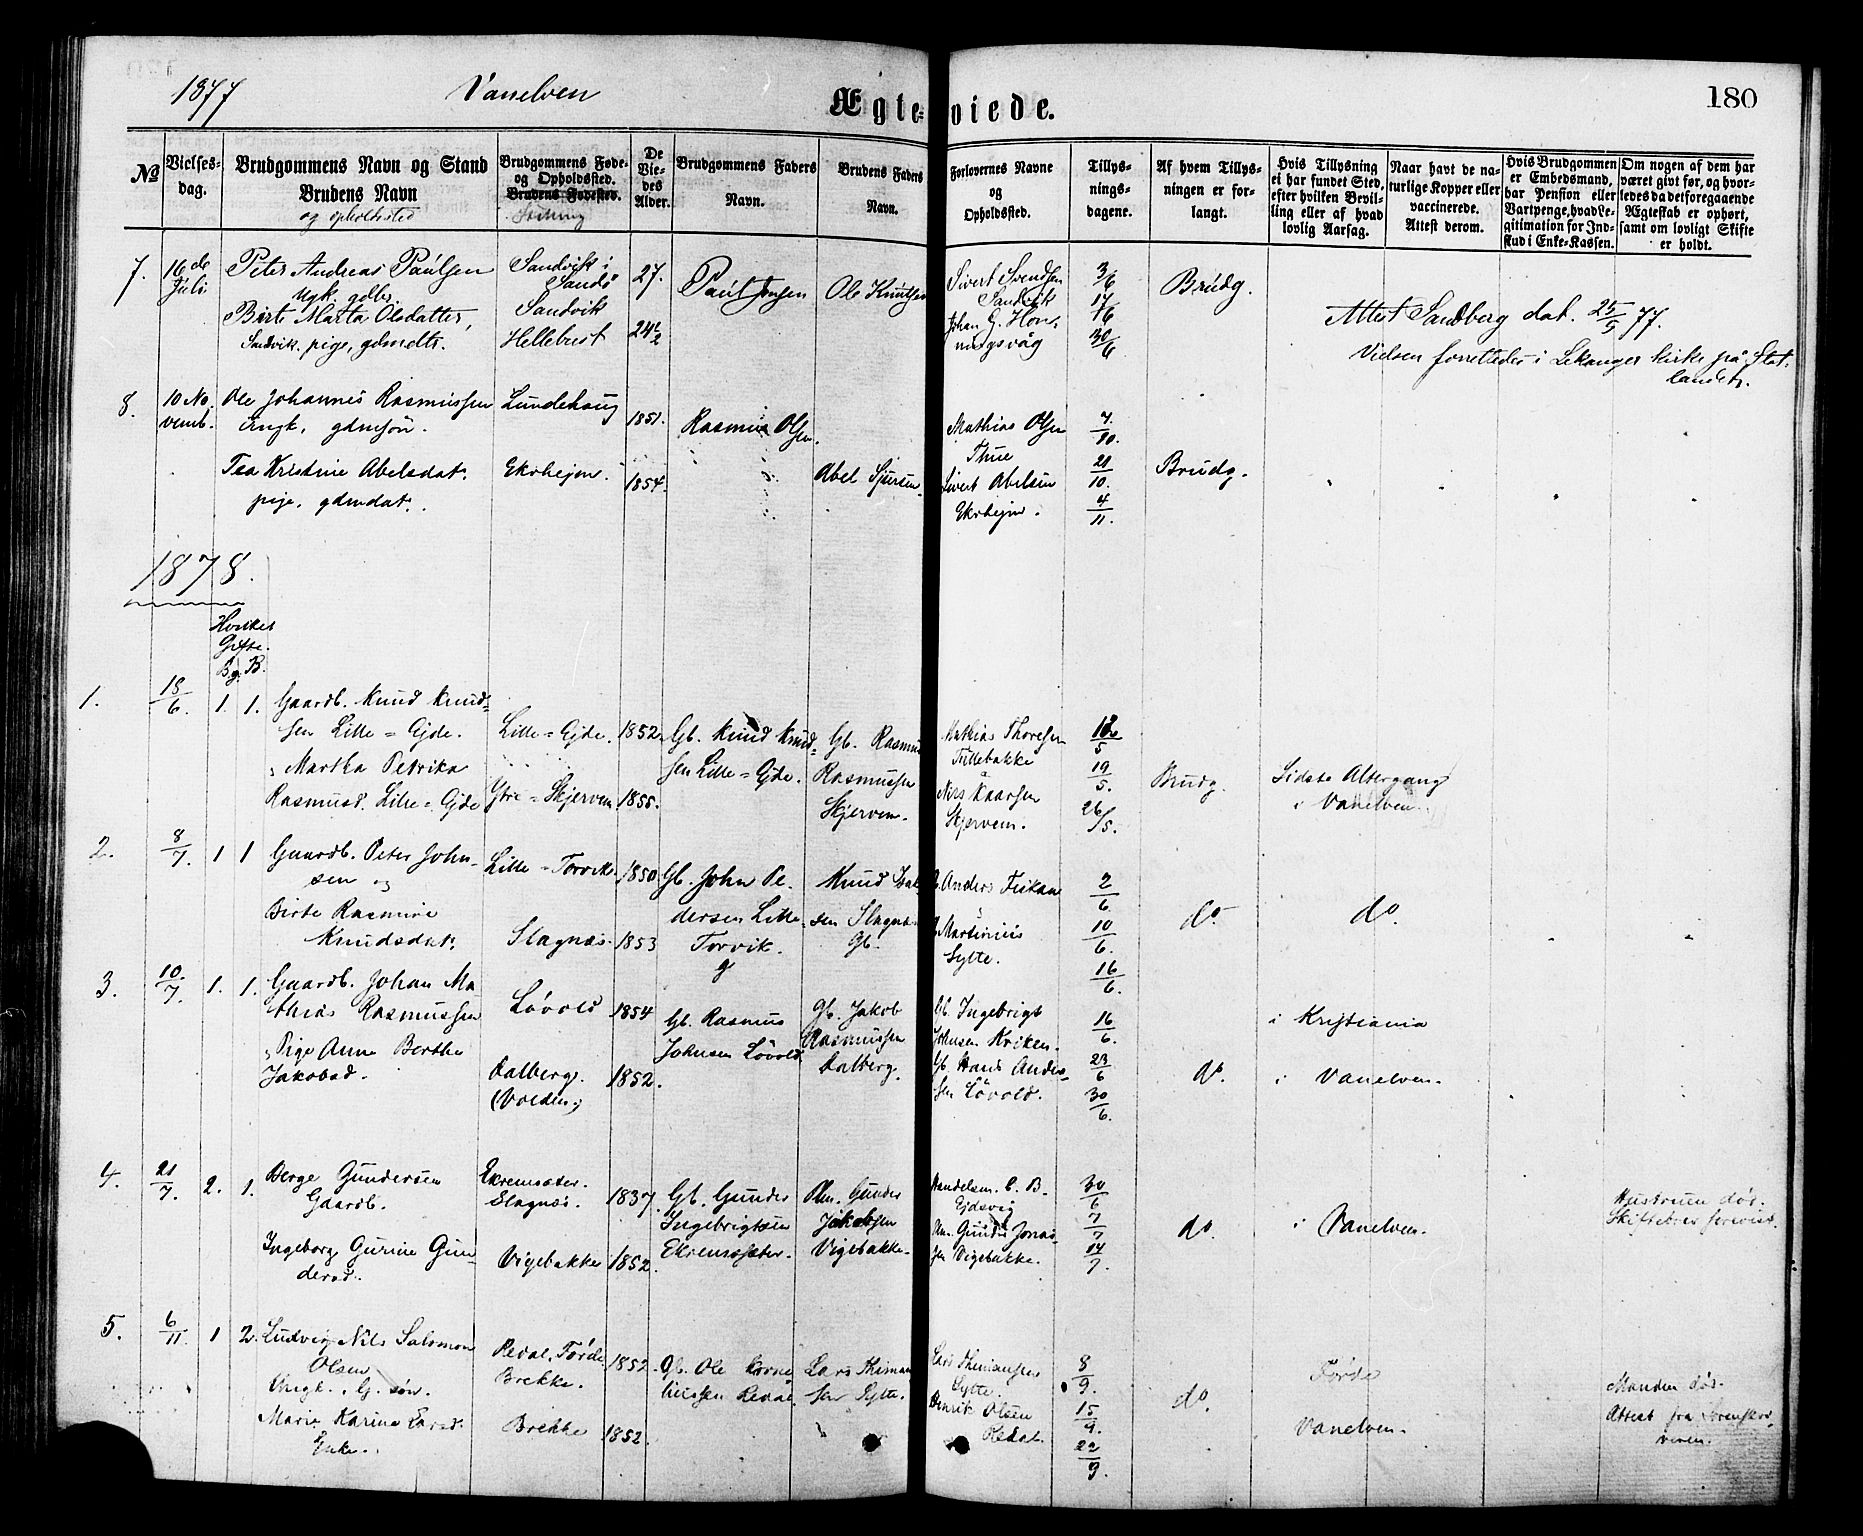 1877 Vanelven Ægteviede. 180
No
Vielses-
dag.
Brudgommens Navn og Stand
Brudens Navn
og opholdssted
Brudgommens Føde-
og Opholdssted.
Brudens Fødested.
De
Vie-
des
Alder.
Brudgommens Faders
Navn.
Brudens Faders
Navn.
Forlovernes Navne
og
Opholdssted.
Tillys-
nings-
dagene.
Af hvem Tillys-
ningen er for-
langt.
Hvis Tillysning
ei har fundet Sted,
efter hvilken Bevil-
ling eller af hvad
lovlig Aarsag.
Naar havt de na-
turlige Kopper eller
vaccinerede.
Attest derom.
Hvis Brudgommen
er Embedsmand,
har Pension eller
Vartpenge, hvad Le-
gitimation for Ind-
skud i Enke-Kassen.
Om nogen af dem har
været givt før, og hvor-
ledes da det foregaaende
Ægteskab er ophørt,
samt om lovligt Skifte
er holdt.
7.
16de
Juli
Peter Andreas Paulsen
Ugk. gdbr.
Birte Marta Olsdatter,
Sandvik. pige, gdmdtr.
Sandvik i
Sandø
Sandvik
Hellebust
27.
24 1/2
Paul Jensen
Ole Knutsen
Sivert Svendsen
Sandvik
Johan G. Hon-
ningsvåg
3/6
17/6
30/6
Brudg.
Attest Sandberg dat. 25/5 77.
Vielsen forrettedes i Lekanger kirke på Stat-
landet.
8.
10 No-
vemb.
Ole Johannes Rasmussen
Ungk. gdmsøn.
Tea Kristine Abelsdat.
pige, gdmdat.
Lundehaug
Ekrhejm
1851.
1854.
Rasmus Olsen.
Abel Sjursen.
Mathias Olsen
Thue
Sivert Abelsen
Ekrhejm.
7/10.
21/10.
4/11.
Brudg.
1878.
Hvilket
Gifte.
Bg. B.
1.
18/6.
1. 1.
Gaardb. Knud Knud-
sen Lille-Ejde.
Martha Petrika
Rasmusd. Lille-Ejde
Lille-Ejde.
Ytre-Skjerven.
1852.
1855.
Gb. Knud Knud-
sen Lille-Ejde.
Gb. Rasmus
Rasmussen
Skjerven.
Mathias Thoresen
Tillebakke
Nils Kaarsen
Skjerven.
12/5
19/5.
26/5.
Brudg.
Sidste Altergang
i Vanelven.
2.
8/7.
1 1
Gaardb. Peter John-
sen og
Birte Rasmine
Knudsdat.
Lille-Torvik
Slagnæs.
1850
1853
Gb. John Pe-
dersen Lille
Torvik.
Knud
sen Slagnæs
Gb.
Anders Fiskaa
Martinus
Sylte.
2/6.
10/6.
16/6.
do
do.
3.
10/7.
1. 1.
Gaardb. Johan Ma-
thias Rasmussen
Pige Anne Berthe
Jakobsd.
Løvold
Dalberg.
(Volden.)
1854
1852.
Gb. Rasmus
Johnsen Løvold
Gb. Jakob
Rasmussen
Dalberg.
Gb. Ingebrigt
Johnsen Kriken.
Gb. Hans Ander-
sen Løvold.
16/6.
23/6
30/6.
do.
i Kristiania
i Vanelven.
4.
21/7.
2. 1.
Berge Gundersen
Gaardb.
Ingeborg Gurine Gun-
dersd.
Ekremsæter.
Slagnæs.
Vigebakke
1837.
1852.
Gb. Gunder
Ingebrigtsen
Ekremsæter.
Gunder
Jakobsen
Vigebakke.
Handelsm. C. B.
Ejdsvig
Gunder Jonas-
sen Vigebakke.
30/6
7/7
14/7.
do.
i Vanelven.
Hustruen død.
Skiftebrev forevist.
5.
6/11.
1 2.
Ludvig Nils Salomon
Olsen
Ungk. G. søn.
Marie Karine Larsd.
Enke.
Redal, Førde
Brekke.
Brekke
1852.
1852.
Gb. Ole Korne-
liussen Redal.
Lars Thiman-
sen Sylte.
Lars Thimansen
Sylte.
Henrik Olsen
Redal.
8/9.
15/9.
22/9.
do.
Førde
Vanelven.
Manden død.
Attest fra Sorenskri-
veren.